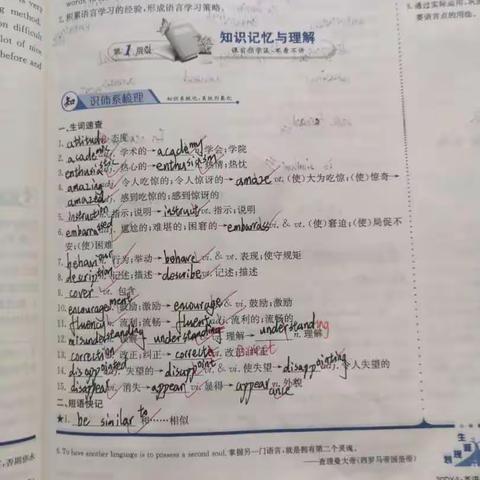 words in
lot of nice
before and
2. 积累语言学习的经验,形成语言学习策略。
5. 通过实际运用,巩
要语言点的用法。
第1阶段
知识记忆与理解
课前预学法·不看不讲
知 识体系梳理 知识系统化,系统形象化
一、生词速查
1. attitude n. 态度
2. academic adj. 学术的→academy n. 学会;学院
3. enthusiastic adj. 热心的→enthusiasm n. 热情;热忱
4. amazing adj. 令人吃惊的;令人惊讶的→amaze vt. (使)大为吃惊;(使)惊奇→
amazed adj. 感到吃惊的;感到惊讶的
5. instruction n. 指示;说明→instruct vt. 指示;说明
6. embarrassed adj. 尴尬的;难堪的;困窘的→embarrass vt. & vi. (使)窘迫;(使)局促不
安;(使)困难
7. behaviour n. 行为;举动→behave vt. & vi. 表现;使守规矩
8. description n. 记述;描述→describe vt. 记述;描述
9. cover vt. 包含
10. encouragement n. 鼓励;激励→encourage vt. 鼓励;激励
11. fluency n. 流利;流畅→fluent adj. 流利的;流畅的
12. misunderstanding n. 误解→understand vt. 理解→understanding n. 理解
13. correction n. 改正;纠正→correct vt. 改正;纠正
14. disappointed adj. 失望的→disappoint vt. & vi. 使失望→disappointing adj. 令人失望的
15. disappear vi. 消失→appear vi. 显得→appearance n. 外貌
二、短语快记
★1. be similar to 和……相似
6. To have another language is to possess a second soul. 掌握另一门语言,就是拥有第二个灵魂。
——查理曼大帝(西罗马帝国皇帝)